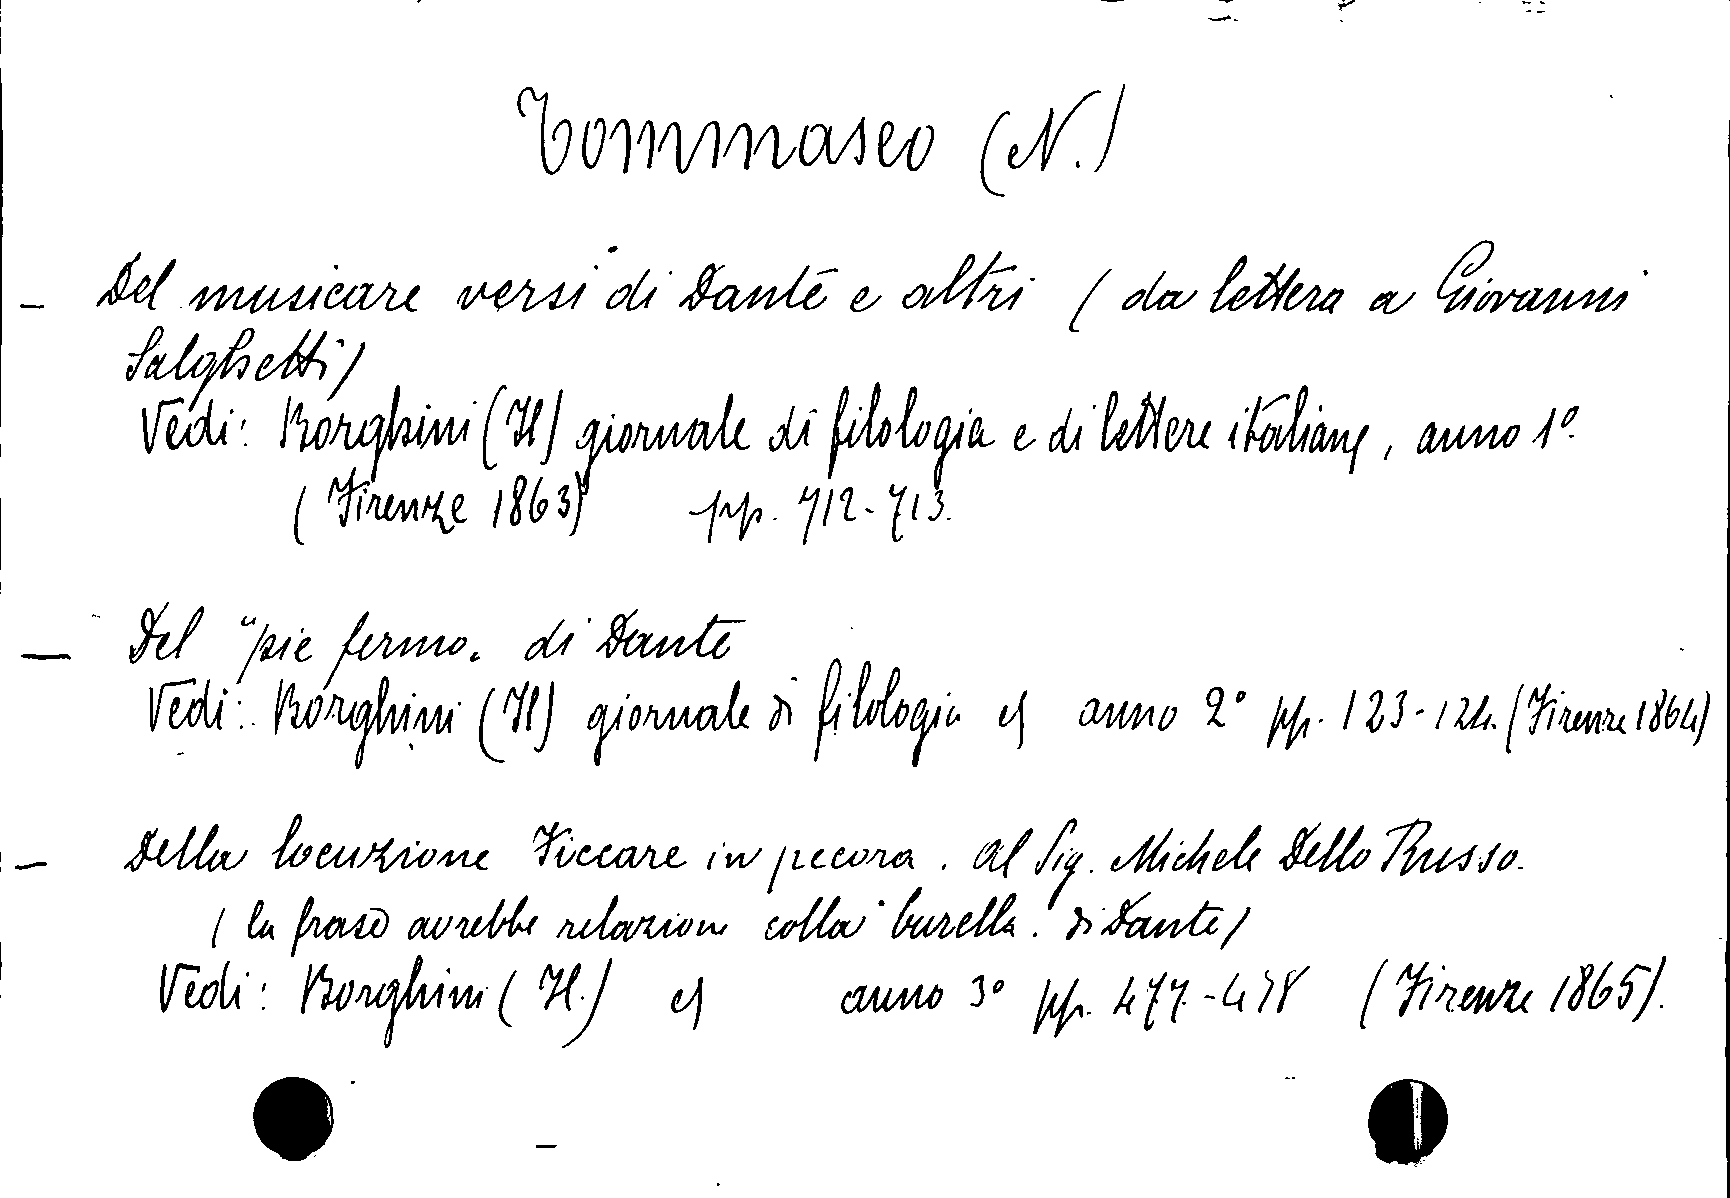 Tommaseo (N.)
- Del musicare versi di Dante e altri (da lettera a Giovanni
Salghetti)
Vedi: Borghini (Il) giornale di filologia e di lettere italiane, anno 1º.
(Firenze 1863) pp. 712-713.
- Del "pie fermo" di Dante
Vedi: Borghini (Il) giornale di filologia ec anno 2º pp. 123-124. (Firenze 1864)
- Della locuzione Ficcare in pecora. Al Sig. Michele Dello Russo.
(la frase avrebbe relazione colla "burella" di Dante)
Vedi: Borghini (Il.) ec anno 3º pp. 477-478 (Firenze 1865).